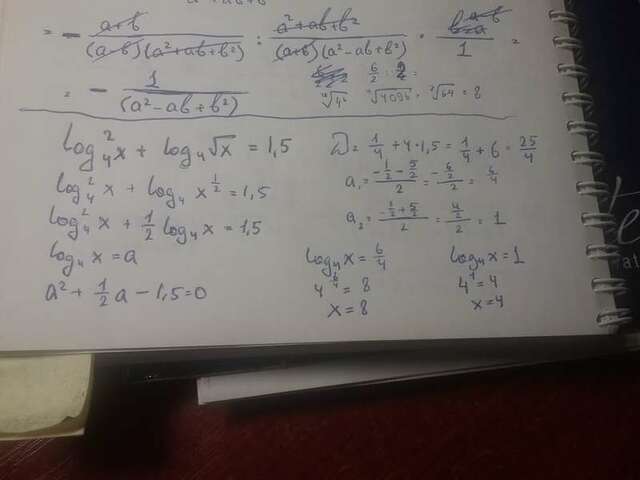 a²+ab+b²
= - a+b / (a-b)(a²+ab+b²) : a²+ab+b² / (a+b)(a²-ab+b²) · a-b / 1 =
= - 1 / (a²-ab+b²)
6/2 : 2 =
√4⁶ √4096 = √64 = 8
log₄²x + log₄√x = 1,5
log₄²x + log₄x^(1/2) = 1,5
log₄²x + 1/2 log₄x = 1,5
log₄x = a
a² + 1/2a - 1,5 = 0
D = 1/4 + 4·1,5 = 1/4 + 6 = 25/4
a₁ = (-1/2 - 5/2) / 2 = (-6/2) / 2 = 6/4
a₂ = (-1/2 + 5/2) / 2 = (4/2) / 2 = 1
log₄x = 6/4
4^(6/4) = 8
x = 8
log₄x = 1
4¹ = 4
x = 4